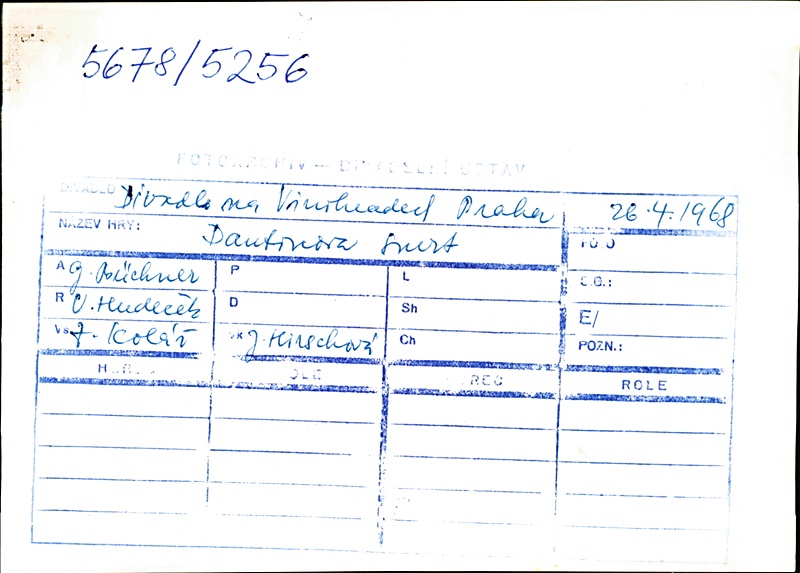 5678/5256
FOTOARCHIV — DIVADELNÍ ÚSTAV
DIVADLO Divadlo na Vinohradech Praha 26.4.1968
NÁZEV HRY: Dantonova smrt FOTO
A G. Büchner P L Č.G.:
R V. Hudeček D Sh E/
Vs J. Kolář VK J. Hirschová Ch POZN.:
ROLE